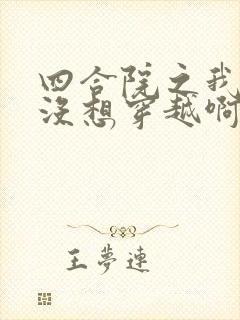 四合院之我
没想穿越啊
王夢連